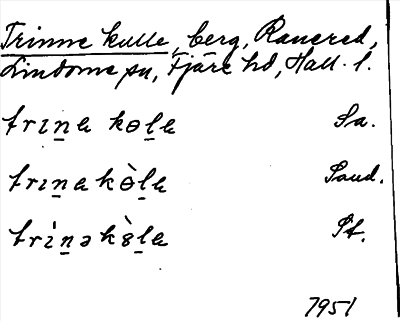 Trinne kulle, berg, Ranered,
Lindome sn, Fjäre hd, Hall. l.
trɪn̲a kɵl̲a Sa.
trɪn̲akɵ̀l̲a Sand.
trɪ̀n̲əkɵ̀l̲a St.
7951